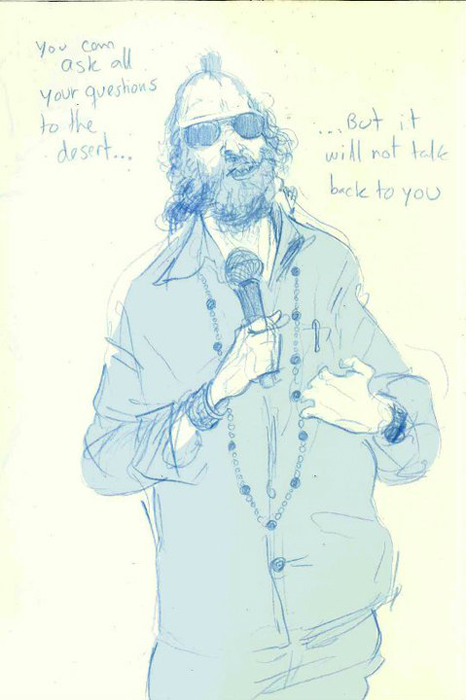 you can
ask all
your questions
to the
desert...
...But it
will not talk
back to you